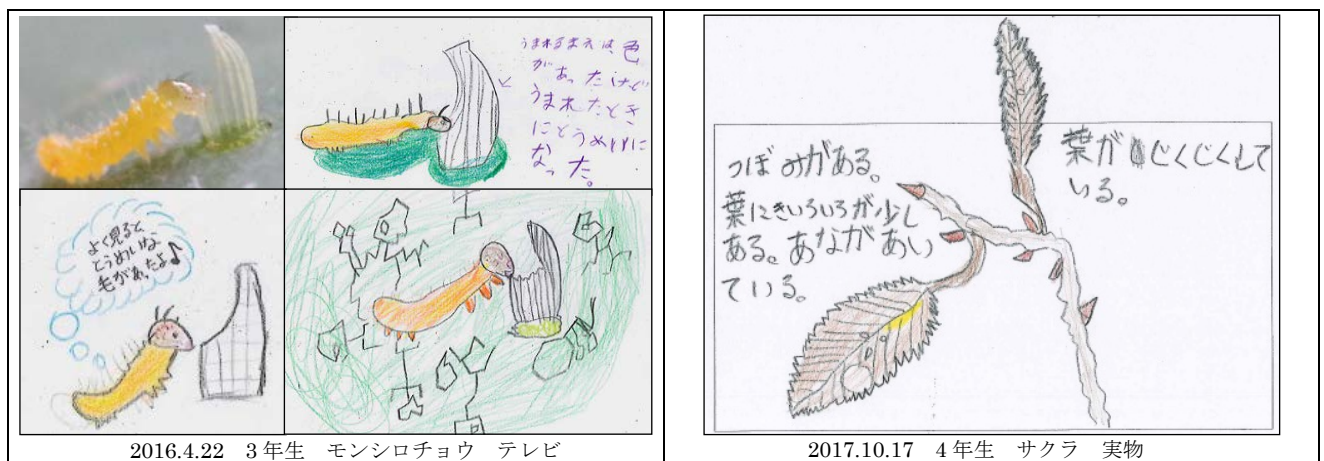 うまれるまえは、色
があったけど
うまれたとき
にとうめいに
なった。
よく見ると
とうめいな
毛があったよ♪
2016.4.22 3年生 モンシロチョウ テレビ
つぼみがある。
葉にきいろいろが少し
ある。あながあい
ている。
葉がじくじくして
いる。
2017.10.17 4年生 サクラ 実物